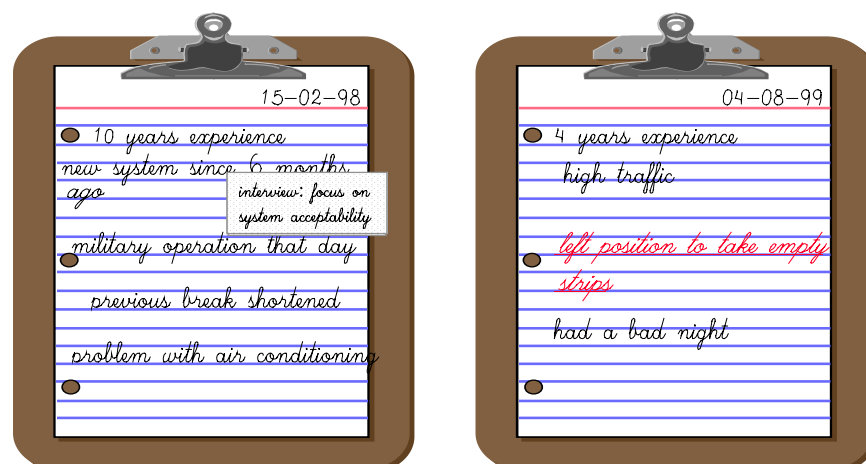 15-02-98
10 years experience
new system since 6 months
ago
interview: focus on
system acceptability
military operation that day
previous break shortened
problem with air conditioning
04-08-99
4 years experience
high traffic
left position to take empty
strips
had a bad night